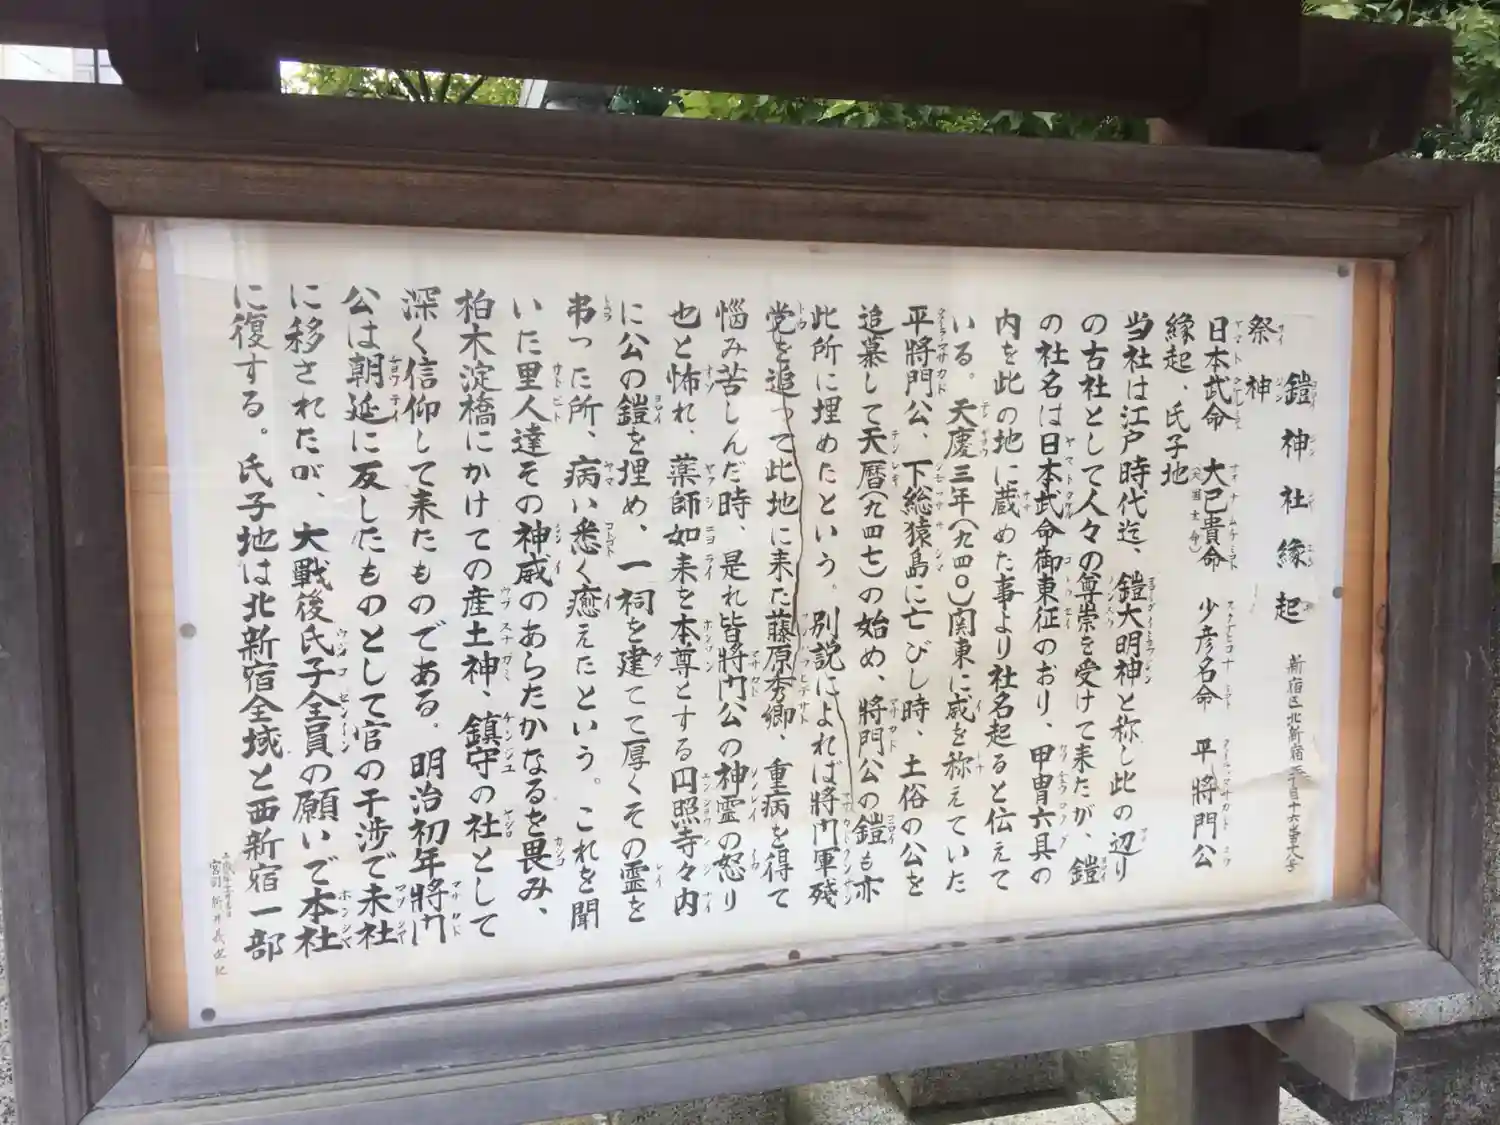 鎧神社縁起
新宿区北新宿三丁目十六番十八号
祭神
日本武命 大己貴命 少彦名命 平將門公
(大国主命)
縁起、氏子地
当社は江戸時代迄、鎧大明神と称し此の辺り
の古社として人々の尊崇を受けて来たが、鎧
の社名は日本武命御東征のおり、甲冑六具の
内を此の地に蔵めた事より社名起ると伝えて
いる。天慶三年(九四〇)関東に威を称えていた
平將門公、下総猿島に亡びし時、土俗の公を
追慕して天暦(九四七)の始め、將門公の鎧も亦
此所に埋めたという。別説によれば將門軍殘
党を追って此地に来た藤原秀卿、重病を得て
悩み苦しんだ時、是れ皆將門公の神霊の怒り
也と怖れ、薬師如来を本尊とする円照寺々内
に公の鎧を埋め、一祠を建てて厚くその霊を
弔った所、病い悉く癒えたという。これを聞
いた里人達その神威のあらたかなるを畏み、
柏木淀橋にかけての産土神、鎮守の社として
深く信仰して来たものである。明治初年將門
公は朝廷に反したものとして官の干渉で末社
に移されたが、大戰後氏子全員の願いで本社
に復する。氏子地は北新宿全域と西新宿一部
宮司